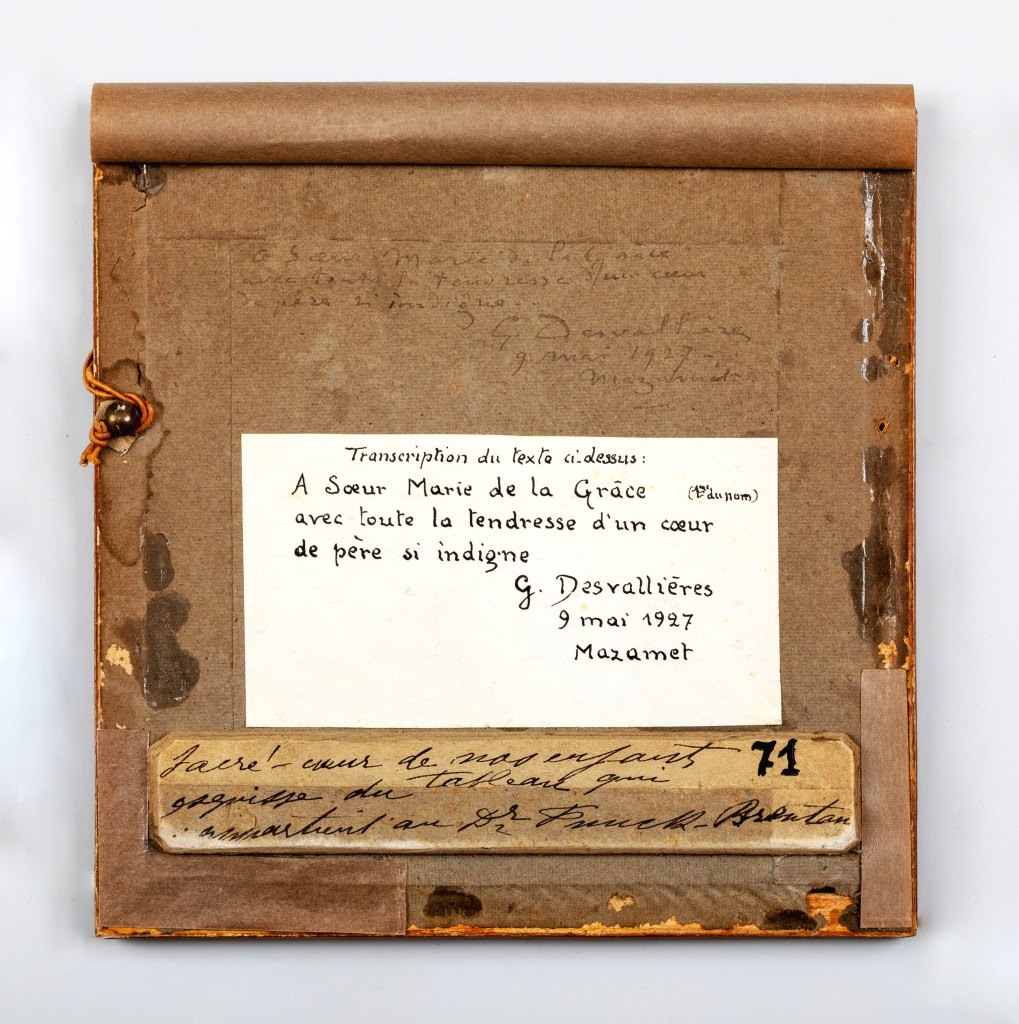 A Sœur Marie de la Grâce
avec toute la tendresse d'un cœur
de père si indigne
G. Desvallières
9 mai 1927
Mazamet
Transcription du texte ci-dessus:
A Sœur Marie de la Grâce (1ère du nom)
avec toute la tendresse d'un cœur
de père si indigne
G. Desvallières
9 mai 1927
Mazamet
Sacré-cœur de nos enfant 71
esquisse du tableau qui
appartient au Dr Funck-Brentan